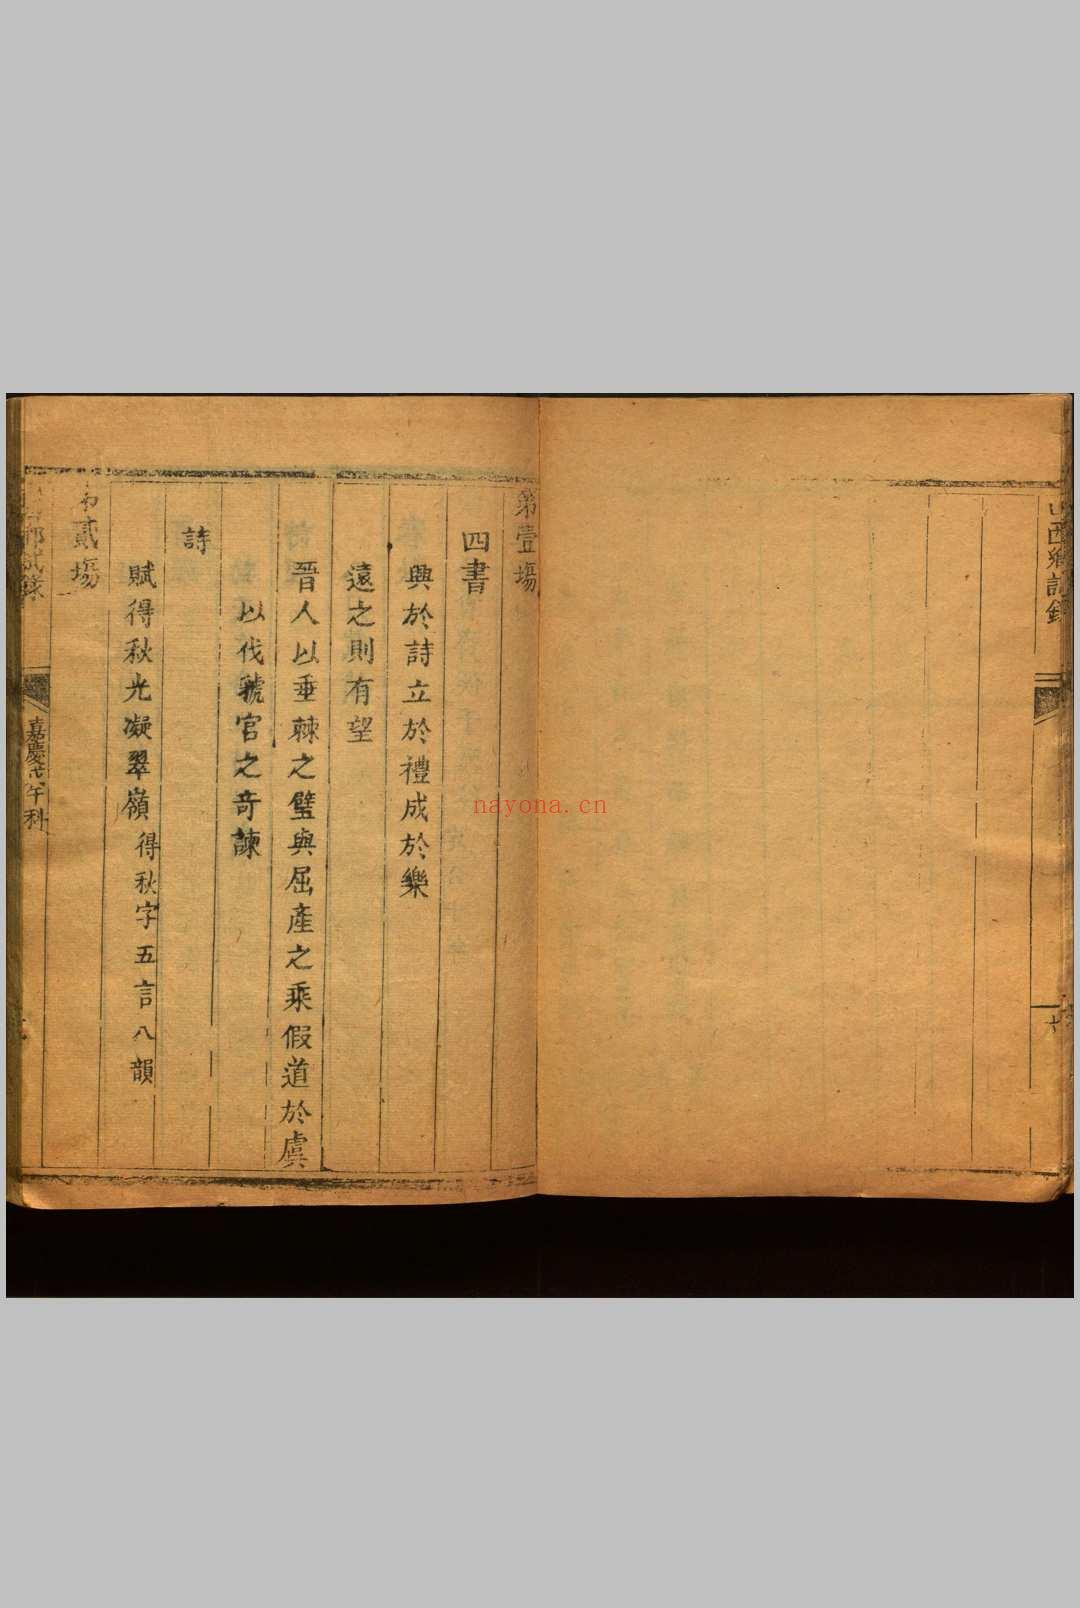 山西鄉試錄
六
第壹場
四書
興於詩立於禮成於樂
遠之則有望
晉人以垂棘之璧與屈產之乘假道於虞
以伐虢官之奇諫
詩
賦得秋光凝翠嶺得秋字五言八韻
貳場
試錄
嘉慶戊午科
nayona.cn